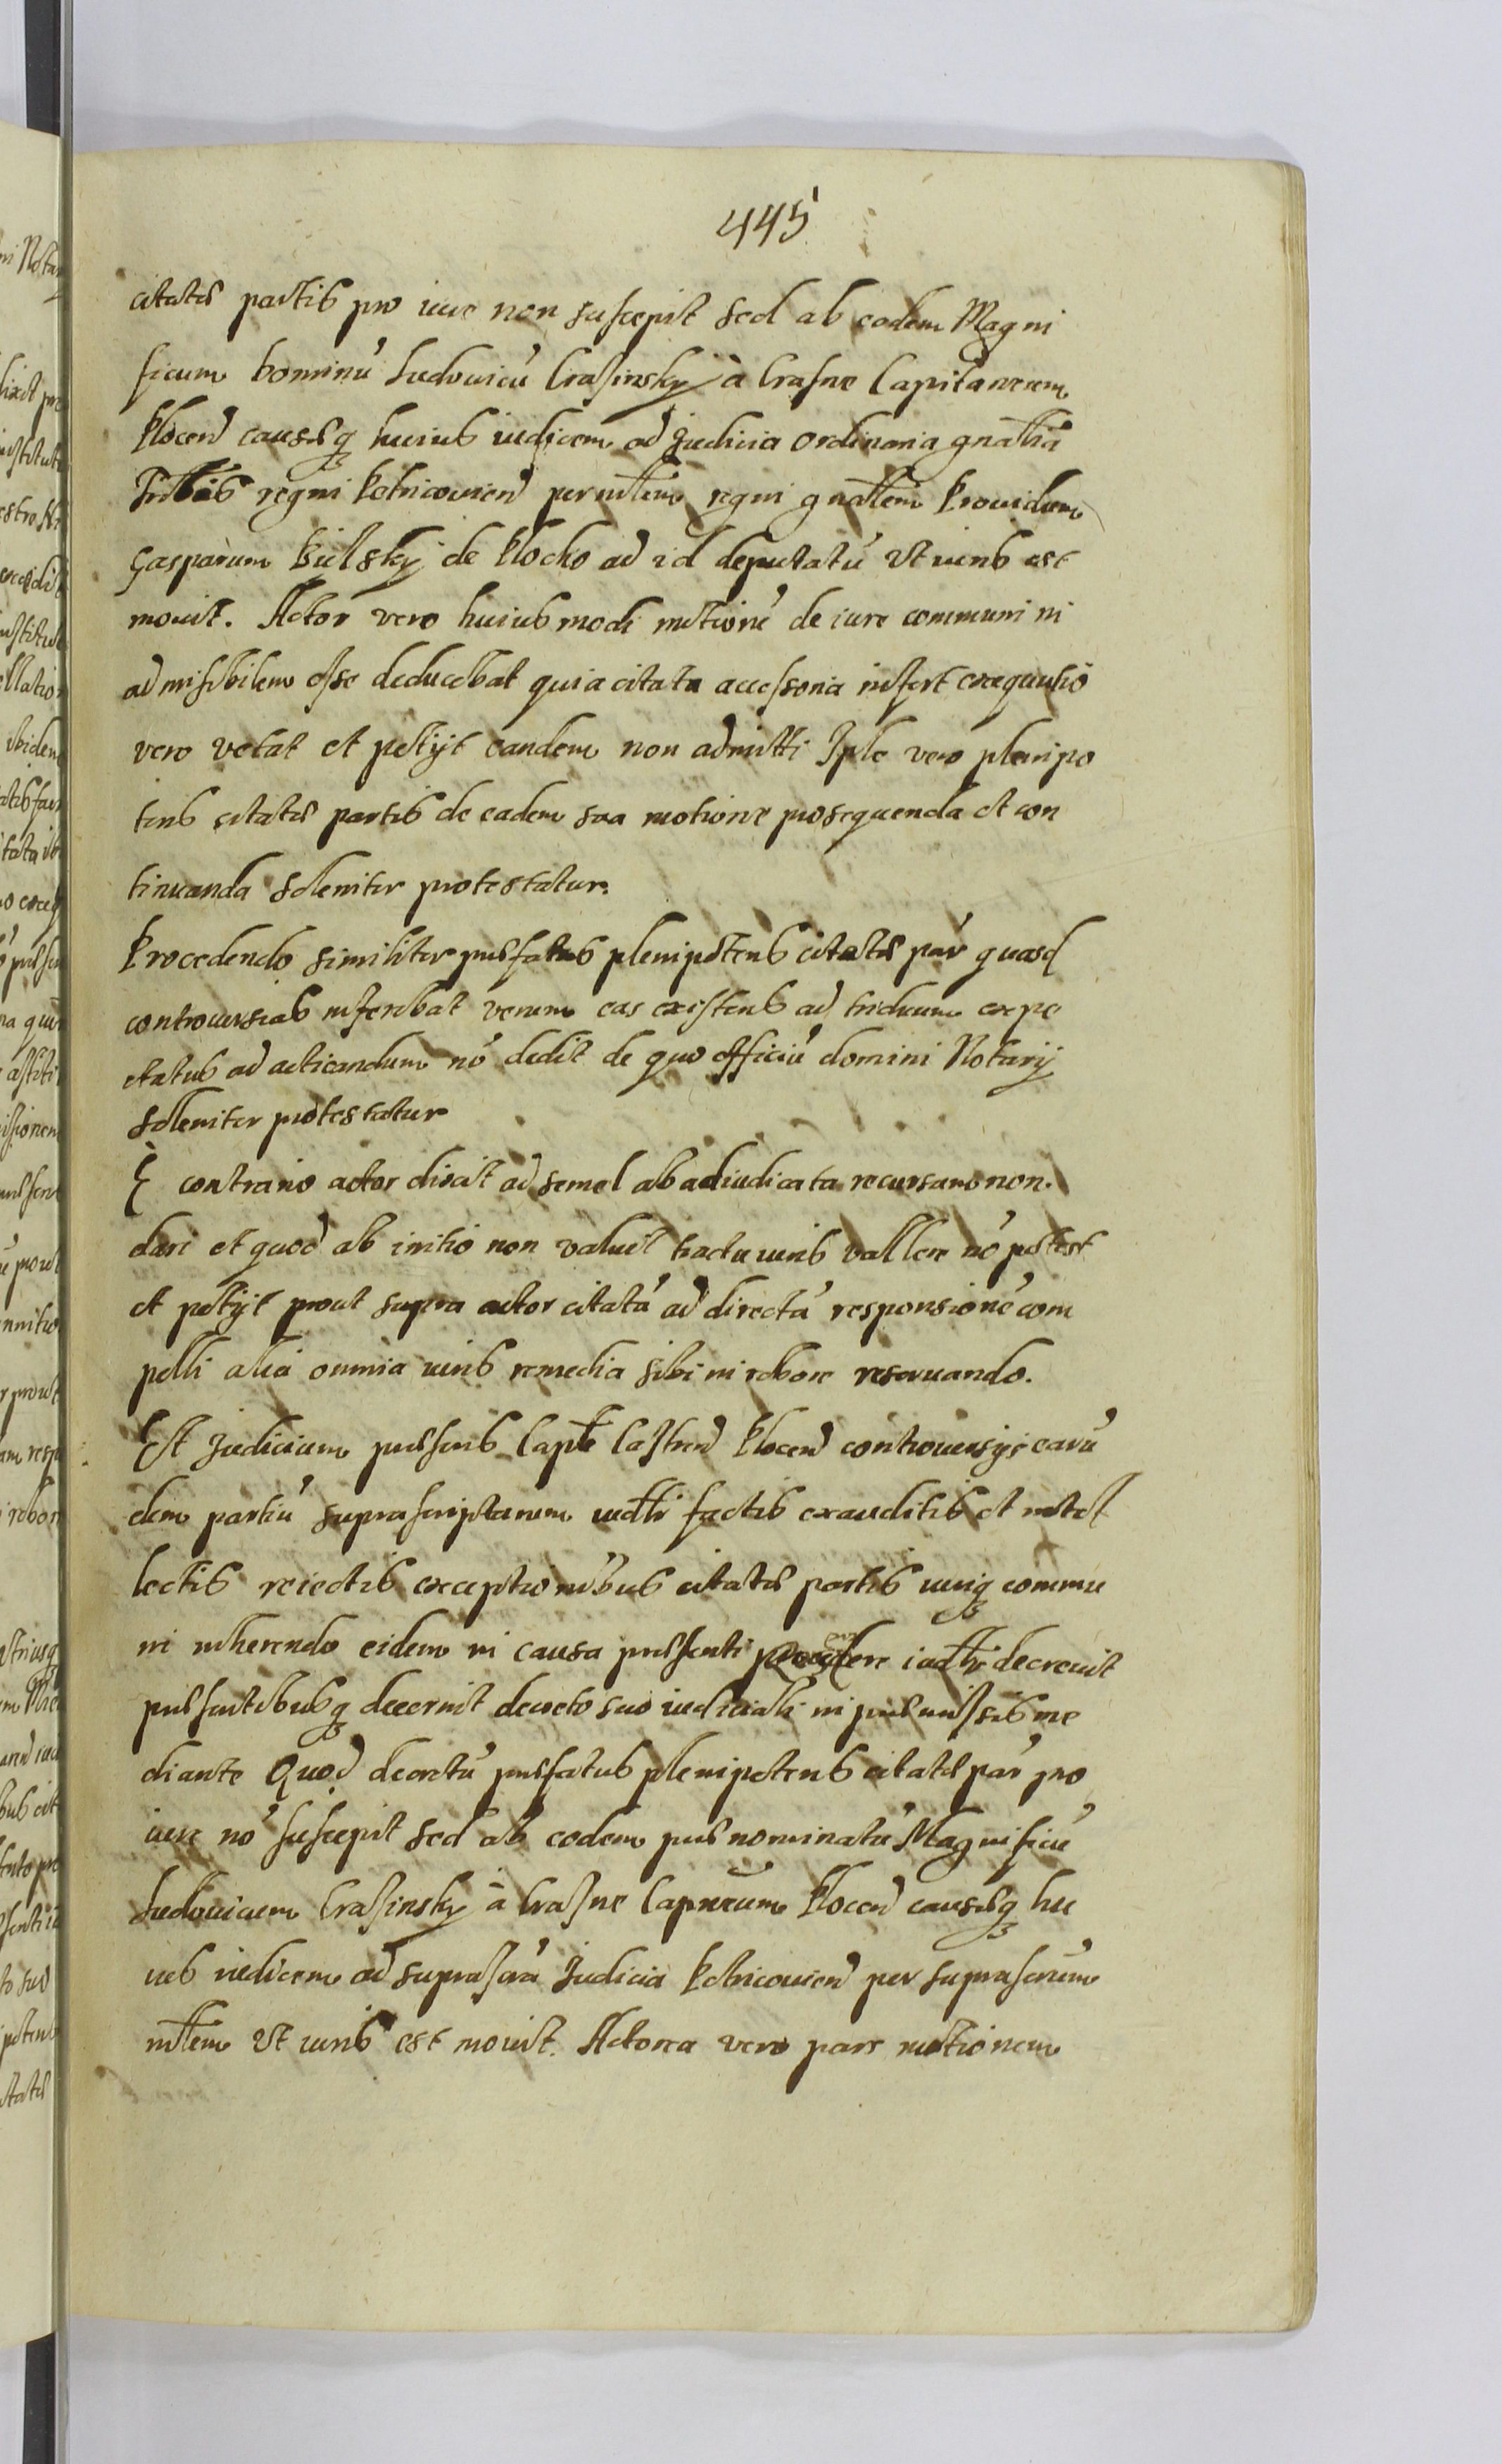 445
citatæ partis pro iure non suscepit sed ab eodem Magni
ficum Dominū Ludouicū Crasinsky à Crasne Capitaneum
Plocen̄ causæq3 huius iudicem ad Judicia ordinaria gn̄alia
Trib̄lis regni Petricouien̄ per mīlem regni gn̄alem Prouidum
Gasparum Bielsky de Plocko ad id deputatū vt iuris est
mouit. Actor vero huiusmodi motionē de iure communi in
admissibilem esse deducebat quia citata accessoria infert exequutio
vero vetat et petijt eandem non admitti Ipse vero plenipo
tens citatæ partis de eadem sua motione prosequenda et con
tinuanda solenniter protestatur.
Procedendo similiter præfatus plenipotens citatæ par quasd
controuersias inferebat verum eas existens ad triduum expe
ctatus ad acticandum nō dedit de quo officiū domini Notarij
solenniter protestatur
E contrario actor dicit ad semel ab adiudicata recursum non
dari et quod ab initio non valuit tractu iuris vallere nō potest
et petijt prout supra actor citatā ad directā responsionē com
pelli alia omnia iuris remedia sibi in robore reseruando.
Et Judicium præsens Cap̄le Castren̄ Plocen̄ controuersijs earū
dem partiū suprascriptarum iud̄lr factis exauditis et intel
lectis reiectis exceptionibus citatæ partis iuriq3 commu
ni inherendo eidem in causa præsenti procedere iud̄lr decreuit
præsentibusq3 decernit decreto suo iudiciali in præmissis me
diante Quod decretū præfatus plenipotens citatæ par pro
iure nō suscepit sed ab eodem prænominatū Magnificū
Ludouicum Crasinsky à Crasne Capneum Plocen̄ causæq3 hu
ius iudicem ad suprascra Judicia Petricouien̄ per suprascrum
mīlem vt iuris est mouit. Actorea vero pars motionem